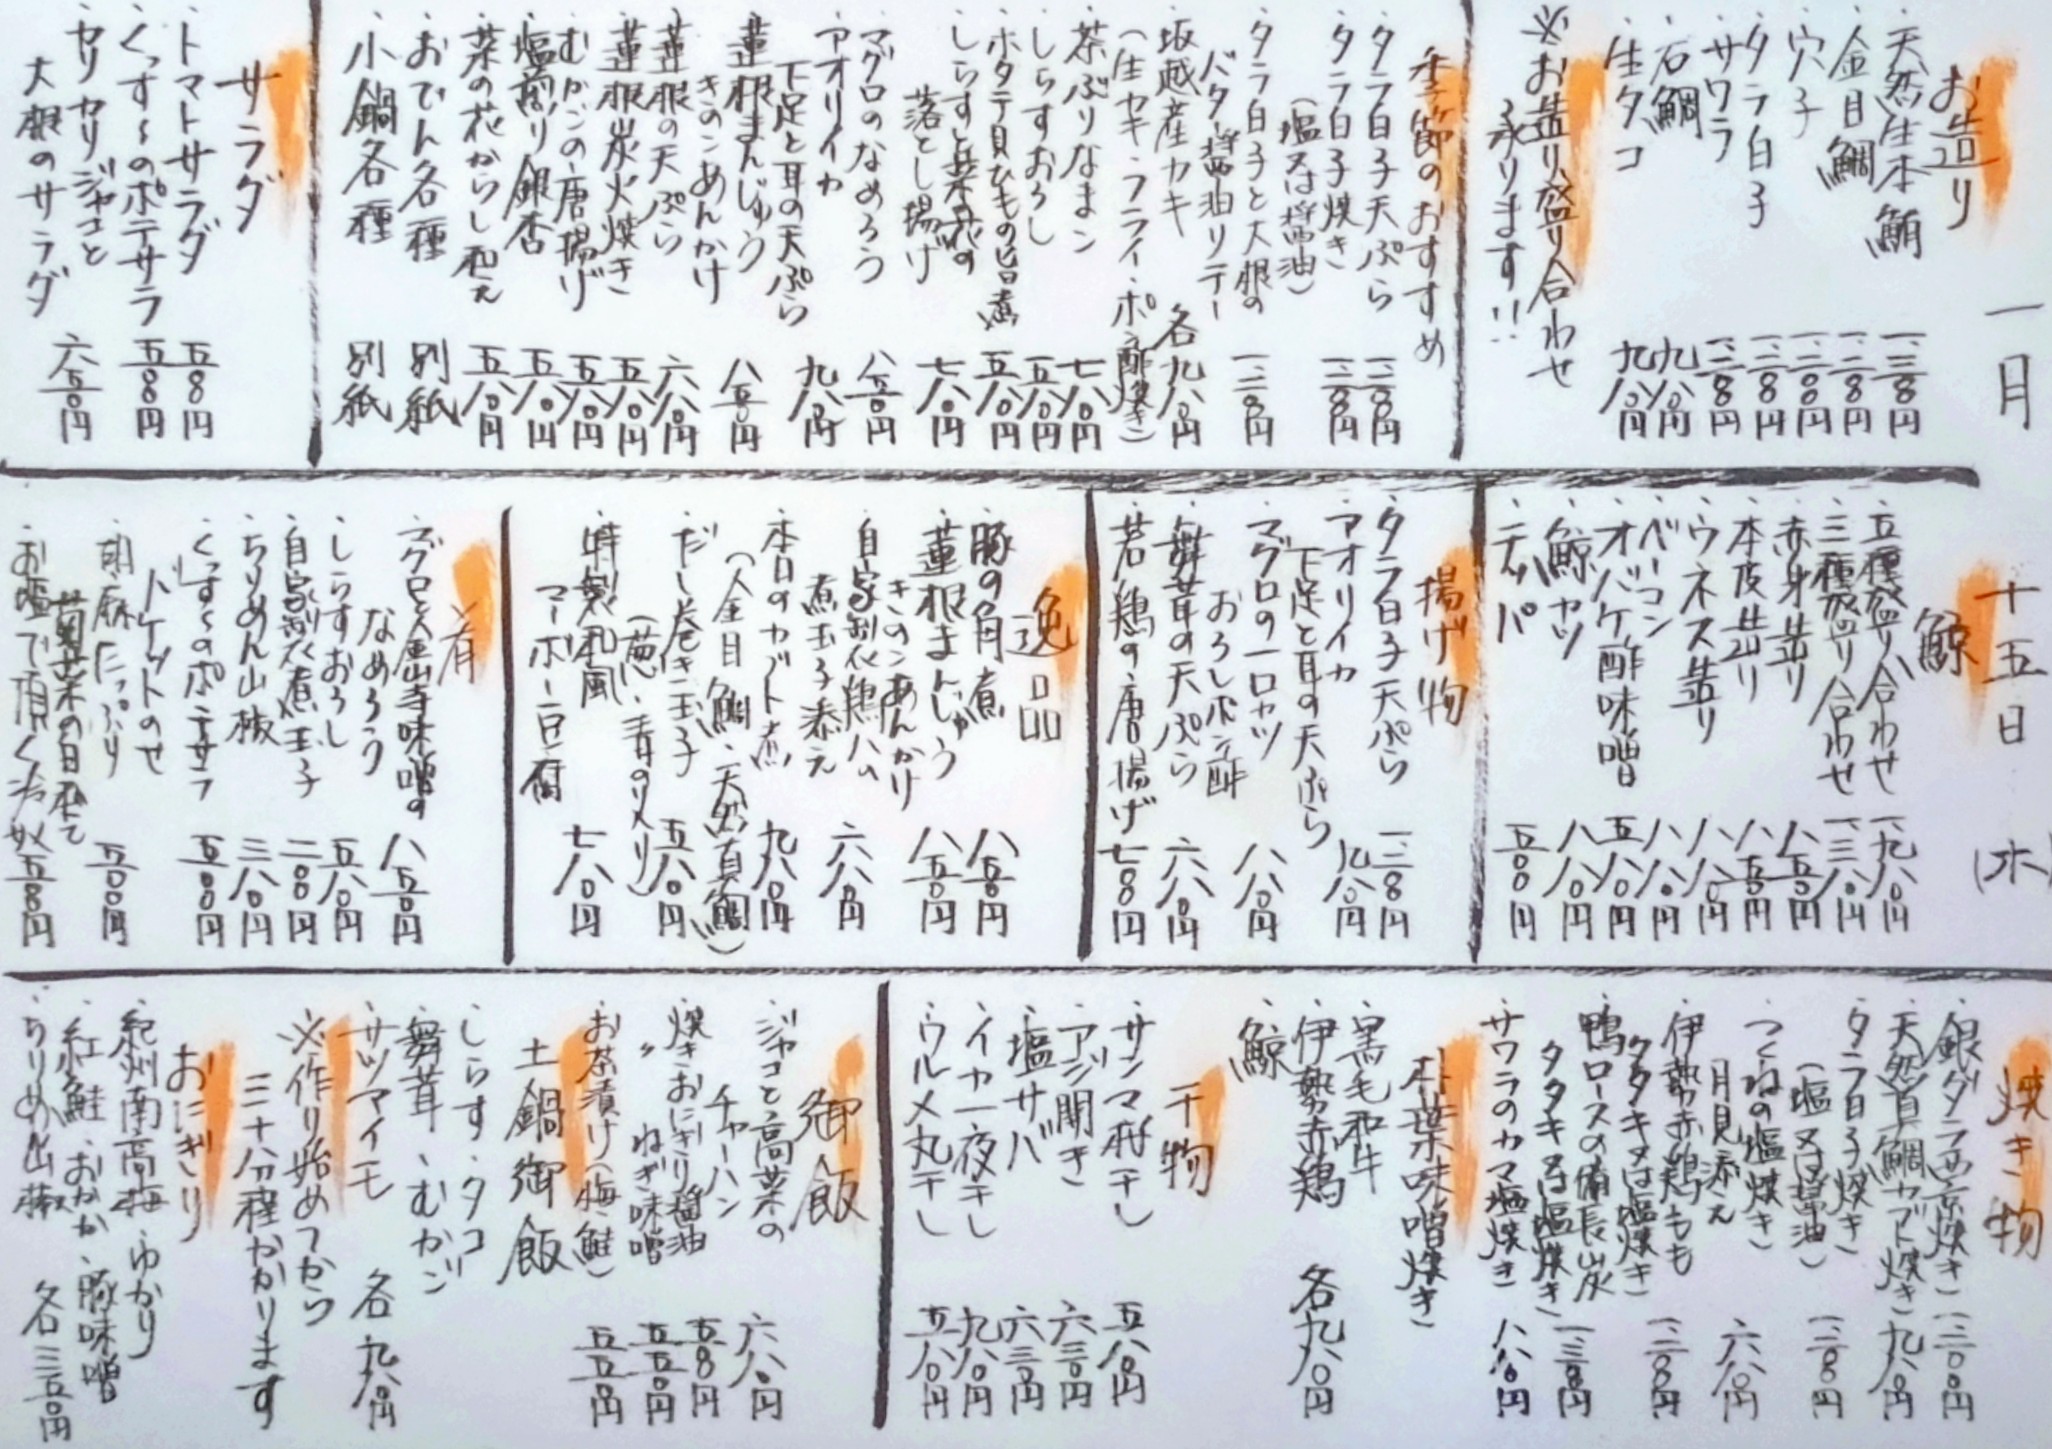 一月 十五日 (木)
お造り
・天然生本鮪 一、三〇〇円
・金目鯛 一、二〇〇円
・穴子 一、二〇〇円
・タラ白子 一、二〇〇円
・サワラ 一、二〇〇円
・石鯛 九八〇円
・生タコ 九八〇円
※お造り盛り合わせ
承ります!!
季節のおすすめ
・タラ白子天ぷら 一、三〇〇円
・タラ白子焼き 一、三〇〇円
(塩又は醤油)
・タラ白子と大根の
バター醤油ソテー 一、三〇〇円
・坂越産カキ 各九八〇円
(生ガキ・フライ・ポン酢焼き)
・茶ぶりなまこ 七八〇円
・しらすおろし 五八〇円
・ホタテ貝ひもの旨煮 五八〇円
・しらすと菜の花の
落とし揚げ 七八〇円
・マグロのなめろう 八五〇円
・アオリイカ
下足と耳の天ぷら 九八〇円
・蓮根まんじゅう
きのこあんかけ 八五〇円
・蓮根の天ぷら 六八〇円
・蓮根炭火焼き 五八〇円
・むかごの唐揚げ 五八〇円
・塩煎り銀杏 五八〇円
・菜の花からし和え 五八〇円
・おでん各種 別紙
・小鍋各種 別紙
サラダ
・トマトサラダ 五〇〇円
・くっす〜のポテサラ 五〇〇円
・セリセリジャコと
大根のサラダ 六五〇円
鯨
・五種盛り合わせ 一、九八〇円
・三種盛り合わせ 一、三八〇円
・赤身造り 八五〇円
・本皮造り 八五〇円
・ウネス造り 八八〇円
・ベーコン 八八〇円
・オバケ酢味噌 五八〇円
・鯨カツ 八八〇円
・テッパ 五〇〇円
揚げ物
・タラ白子天ぷら 一、三〇〇円
・アオリイカ
下足と耳の天ぷら 九八〇円
・マグロの一口カツ
おろしポン酢 八八〇円
・舞茸の天ぷら 六八〇円
・若鶏の唐揚げ 七〇〇円
逸品
・豚の角煮 八五〇円
・蓮根まんじゅう
きのこあんかけ 八五〇円
・自家製鶏ハム
煮玉子添え 六八〇円
・本日のカブト煮 九八〇円
(金目鯛、天然真鯛)
・だし巻き玉子 五八〇円
(葱、青のり入り)
・特製和風
マーボー豆腐 七八〇円
肴
・マグロと金山寺味噌の
なめろう 八五〇円
・しらすおろし 五八〇円
・自家製煮玉子 二〇〇円
・ちりめん山椒 三八〇円
・くっす〜のポテサラ 五〇〇円
バケットのせ
・胡麻たっぷり
菊菜の白和え 五〇〇円
・お塩で頂く冷奴 五〇〇円
焼き物
・銀ダラ西京焼き 一、三〇〇円
・天然真鯛カブト焼き 九八〇円
・タラ白子焼き
(塩又は醤油) 一、三〇〇円
・つくねの塩焼き
月見添え 六八〇円
・伊勢赤鶏もも
タタキ又は塩焼き 一、三〇〇円
・鴨ロースの備長炭
タタキ又は塩焼き 一、三〇〇円
・サワラのカマ塩焼き 八八〇円
朴葉味噌焼き
・黒毛和牛
・伊勢赤鶏 各九八〇円
・鯨
干物
・サンマ丸干し 五八〇円
・アジ開き 六三〇円
・塩サバ 六三〇円
・イカ一夜干し 九八〇円
・ウルメ丸干し 五八〇円
御飯
・ジャコと高菜の
チャーハン 六八〇円
・焼きおにぎり醤油 五〇〇円
・〃 ねぎ味噌 五五〇円
・お茶漬け(梅、鮭) 五五〇円
土鍋御飯
・しらす・タコ
・舞茸・むかご
・サツマイモ 各九八〇円
※作り始めてから
三十分程かかります
おにぎり
・紀州南高梅・ゆかり
・紅鮭・おかか・豚味噌
・ちりめん山椒 各三五〇円